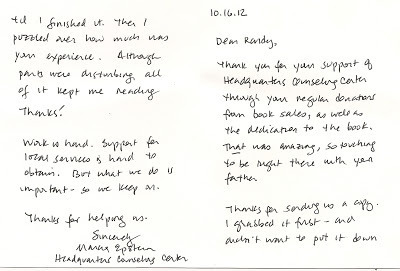 10.16.12
Dear Randy,
Thank you for your support of
Headquarters Counseling Center
through your regular donations
from book sales, as well as
the dedication to the book.
That was amazing, so touching
to be right there with your
father
Thanks for sending us a copy.
I grabbed it first - and
didn't want to put it down
til I finished it. Then I
puzzled over how much was
your experience. Although
parts were disturbing all
of it kept me reading
Thanks!
Work is hard. Support for
local services is hard to
obtain. But what we do is
important - so we keep on.
Thanks for helping us.
Sincerely
Marcia Epstein
Headquarters Counseling Center